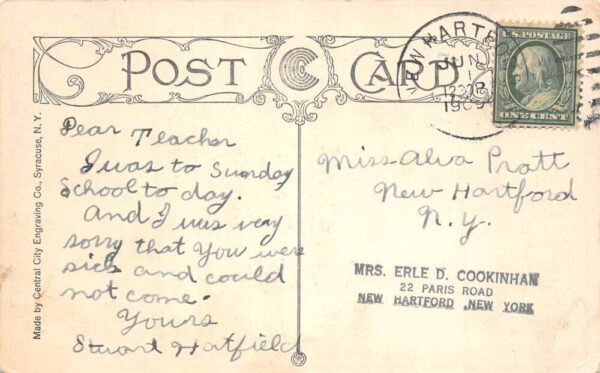 POST CARD
NEW HARTFO
JUN
1
1230P
1909
U.S. POSTAGE
ONE CENT
Dear Teacher
I was to Sunday
School to day.
And I was very
sorry that you were
sick and could
not come.
Yours
Stuart Hatfield
Miss Alva Pratt
New Hartford
N.Y.
MRS. ERLE D. COOKINHAM
22 PARIS ROAD
NEW HARTFORD, NEW YORK
Made by Central City Engraving Co., Syracuse, N. Y.